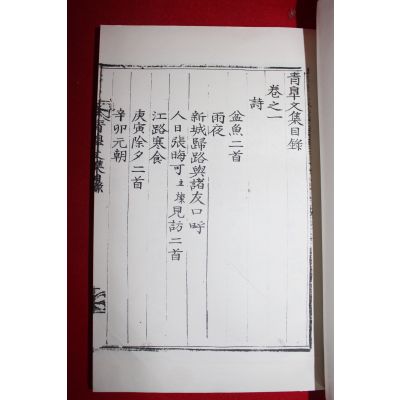 青皐文集目錄
卷之一
詩
盆魚二首
雨夜
新城歸路與諸友口呼
人日張晦可主㙉見訪二首
江路寒食
庚寅除夕二首
辛卯元朝
青皐文集目錄